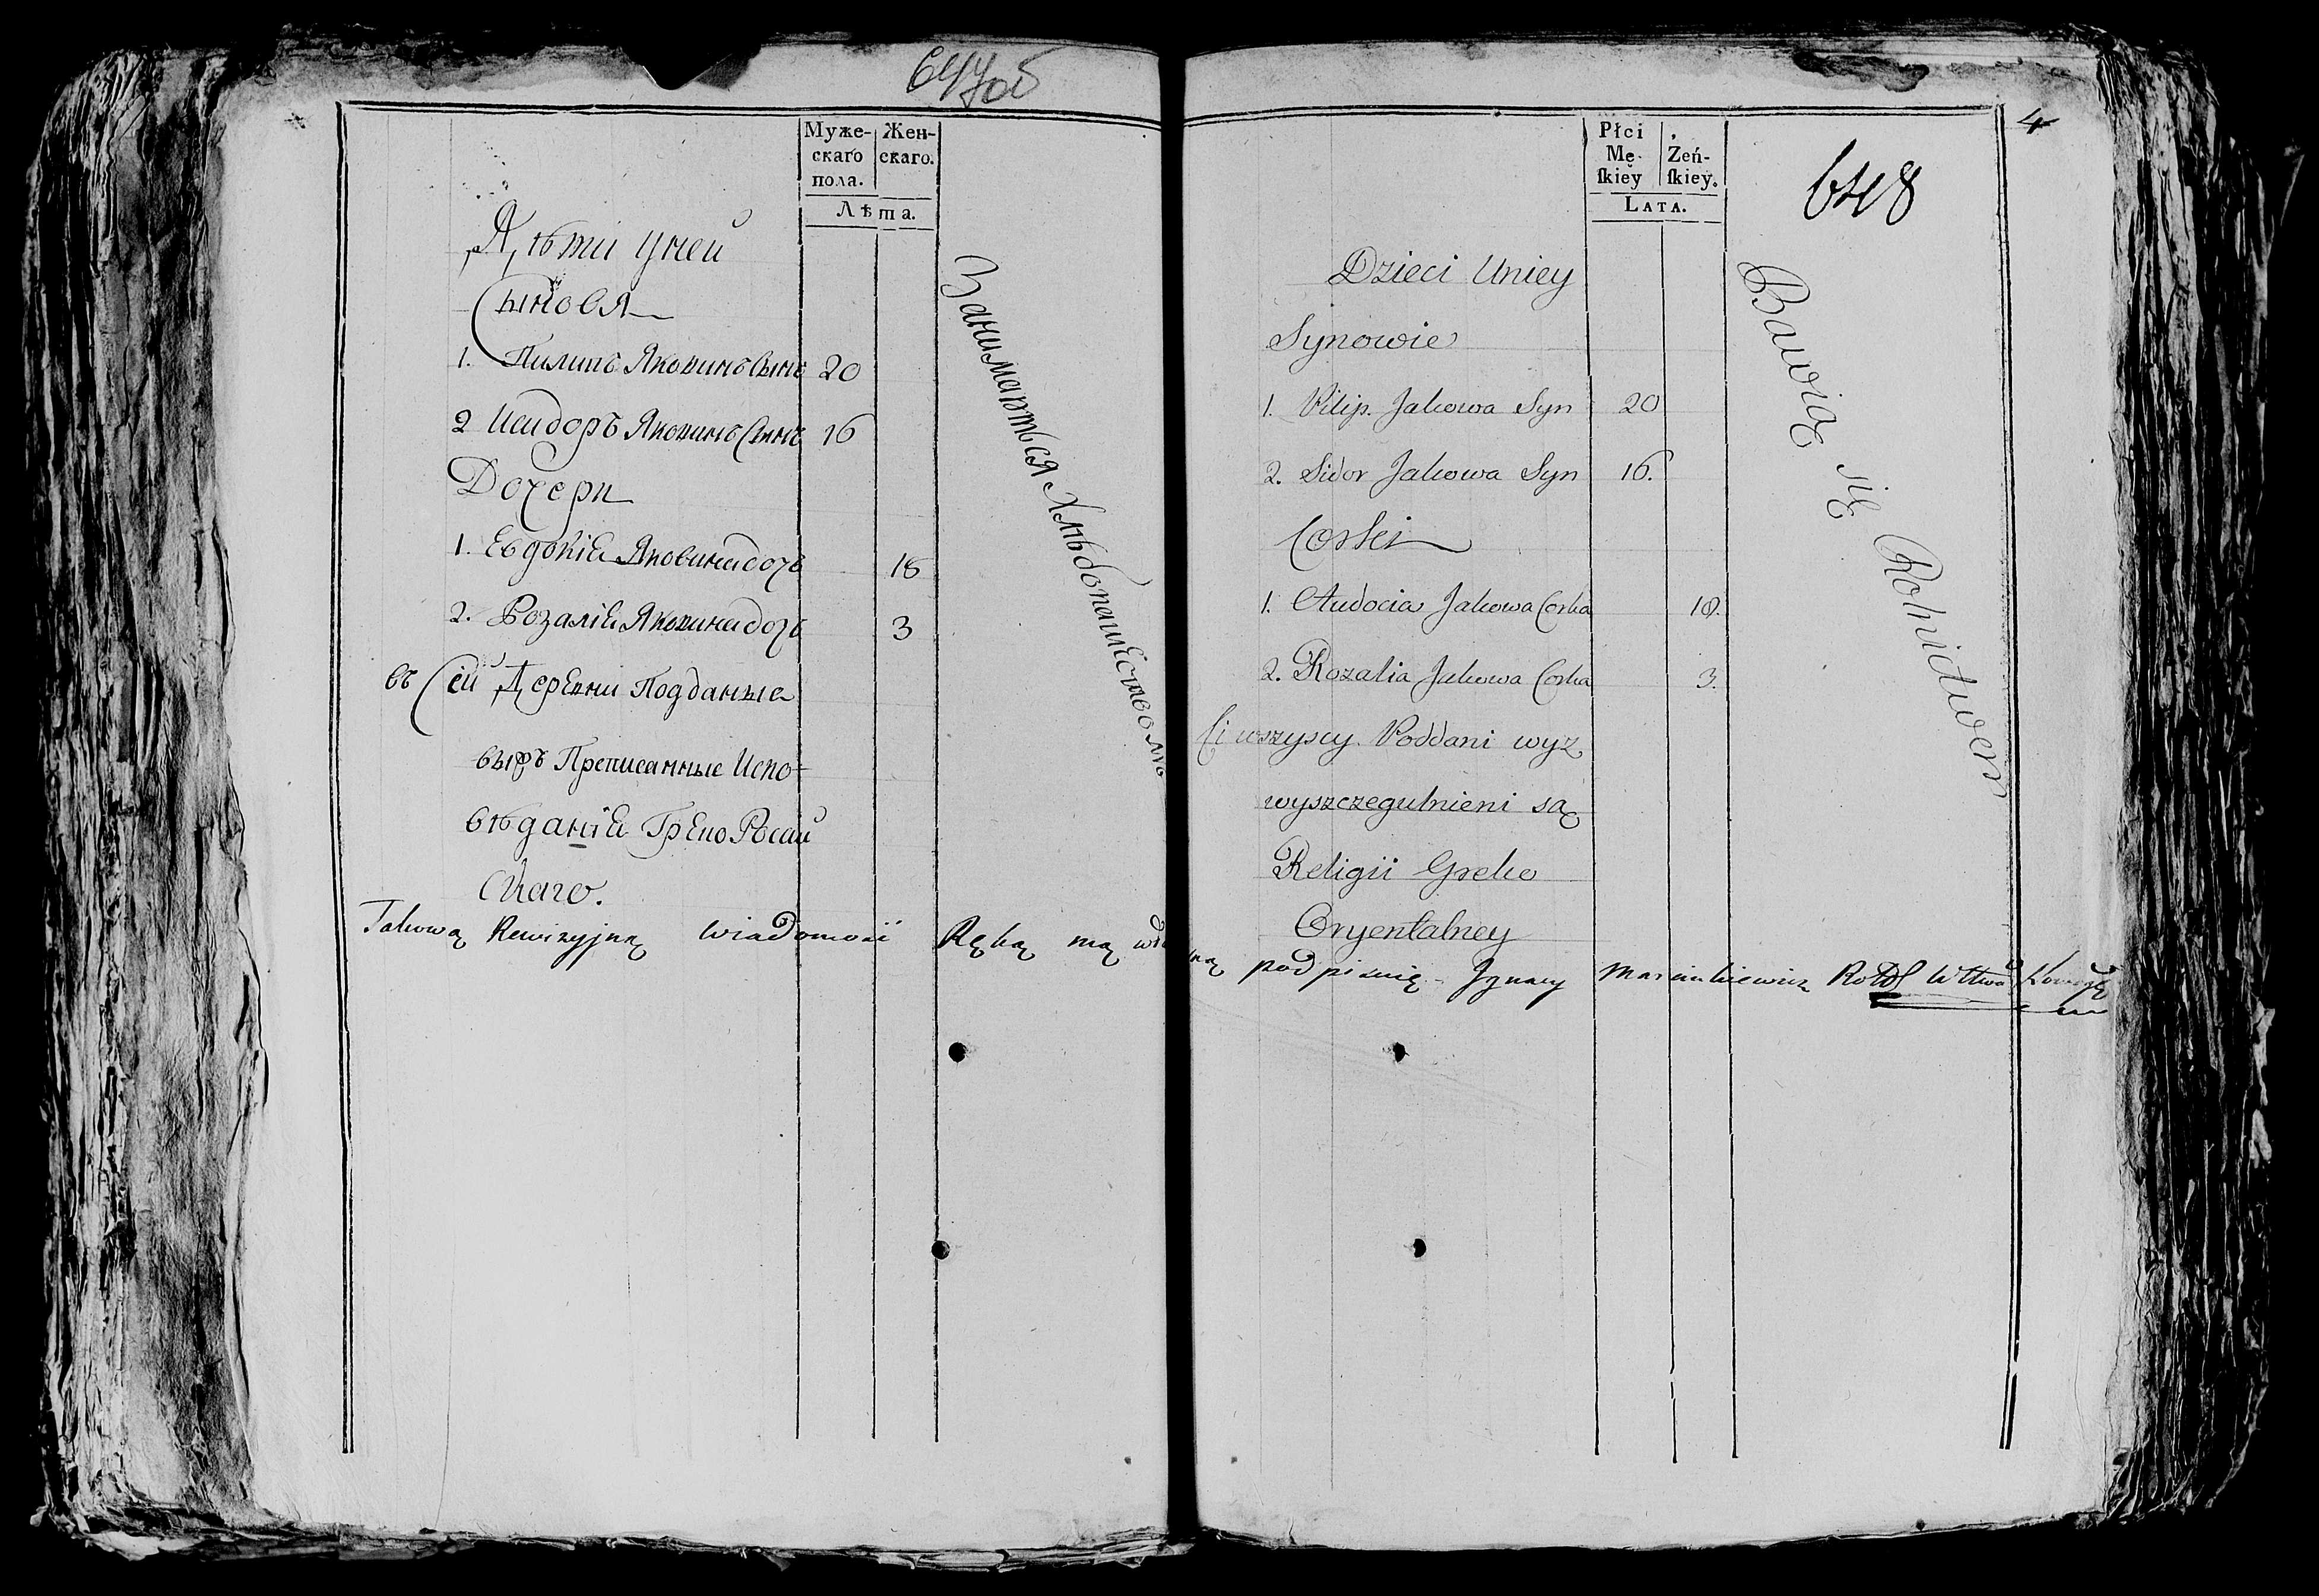 647об
Муже-
скаго
пола.
Жен-
скаго.
Лѣта.
Дѣти у ней
Сыновя
1. Пилипъ Яковинъ Сынъ 20
2 Исидоръ Яковинъ Сынъ 16
Дочери
1. Евдокіа Яковина дочъ 18
2. Розаліа Яковина дочъ 3
въ Сей Деревни Подданые
Преписанные Испо-
вѣданіа Греко Росий
Скаго.
Занимаются Хлѣбопашеством
4
648
Płci
Mę-
ſkiey
Żeń-
ſkiey.
LATA.
Dzieci Uniey
Synowie
1. Pilip. Jakowa Syn 20
2. Sidor Jakowa Syn 16.
Corki
1. Audocia Jakowa Corka 18.
2. Rozalia Jakowa Corka 3.
Ci wszyscy Poddani wyz
wyszczegulnieni są
Religii Greko
Oryentalney
Bawią się Rolnictwem
Takową Rewizyjną wiadomość Ręką mą podpisuię Jgnacy Marcinkiewicz